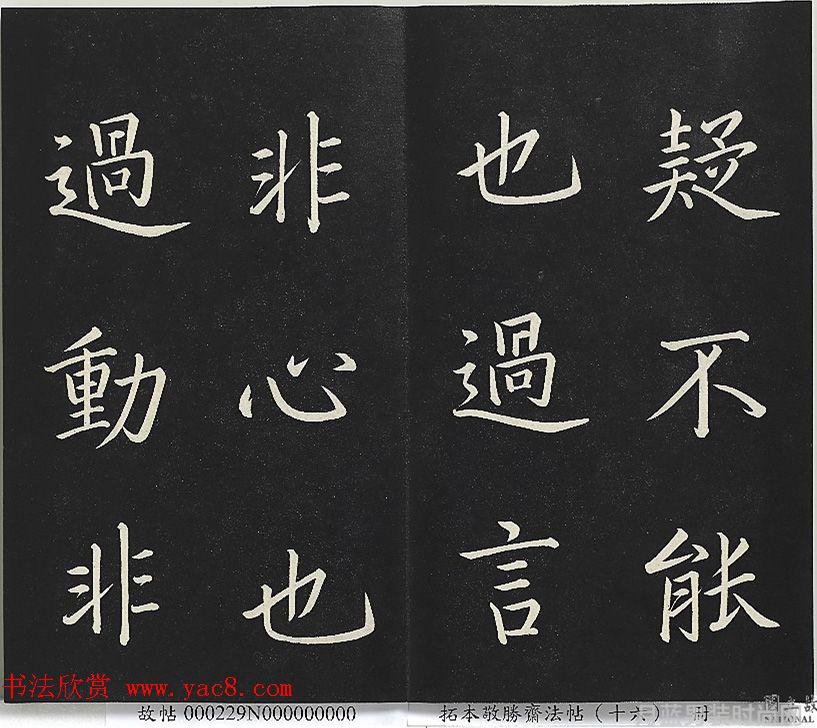 疑不能
也過言
非心也
過動非
书法欣赏 www.yac8.com
故帖 000229N000000000
拓本敬勝齋法帖（十六） 冊
NATIONAL